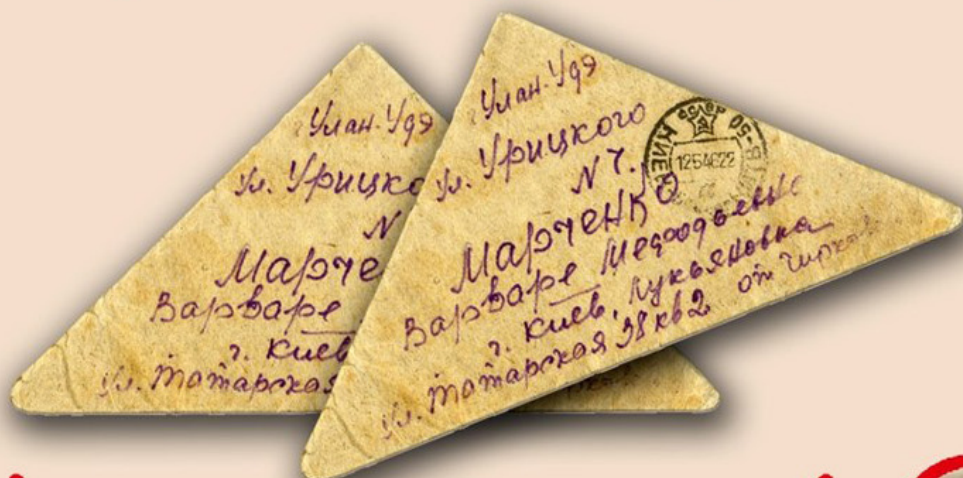 Улан-Удэ
Ул. Урицко
N
Марче
Варваре
г. Киев
Ул. Татарская
Улан-Удэ
Ул. Урицкого
N 7.
Марченко
Варваре
г. Киев, Лукьяновка
Ул. Татарская 38 кв 2 от
КИЕВ
1254622